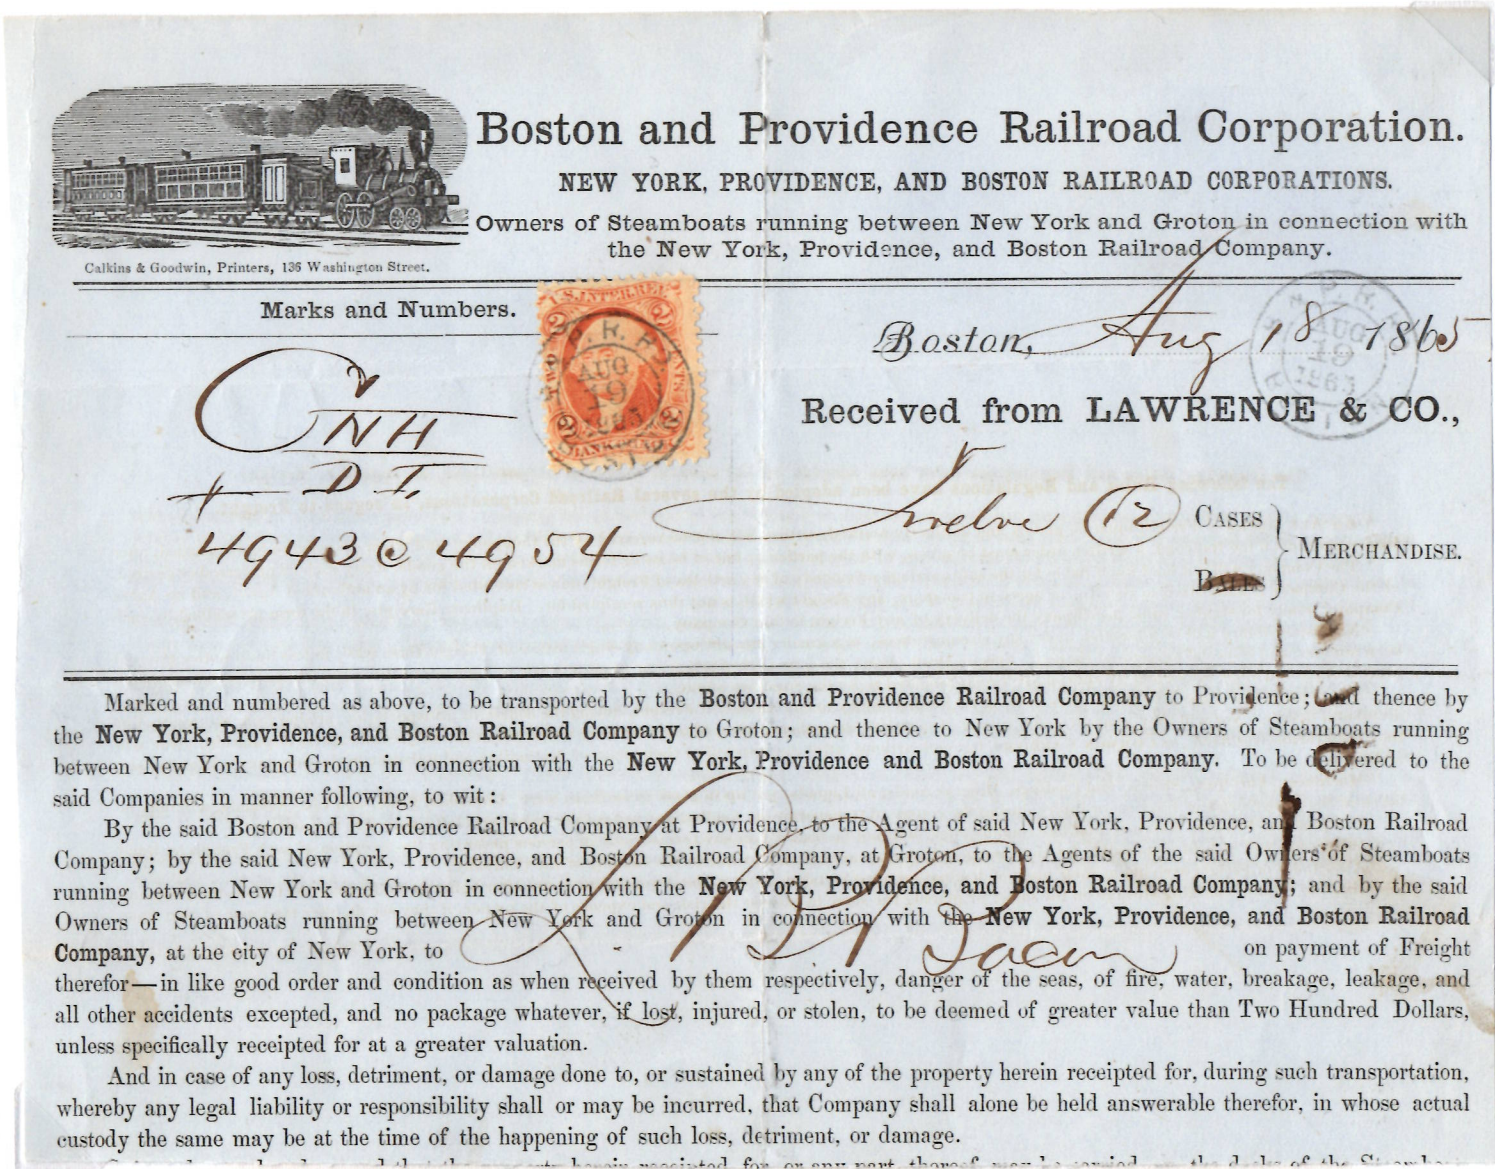 Boston and Providence Railroad Corporation.
NEW YORK, PROVIDENCE, AND BOSTON RAILROAD CORPORATIONS.
Owners of Steamboats running between New York and Groton in connection with
the New York, Providence, and Boston Railroad Company.
Calkins & Goodwin, Printers, 136 Washington Street.
Marks and Numbers.
U.S. INTER. REV.
BANK CHECK
AUG
19
Boston, Aug 18 1865
AUG
19
1865
Received from LAWRENCE & CO.,
NH
D I.
4943 @ 4954
Twelve (12) CASES
BALES
MERCHANDISE.
Marked and numbered as above, to be transported by the Boston and Providence Railroad Company to Providence; and thence by
the New York, Providence, and Boston Railroad Company to Groton; and thence to New York by the Owners of Steamboats running
between New York and Groton in connection with the New York, Providence and Boston Railroad Company. To be delivered to the
said Companies in manner following, to wit:
By the said Boston and Providence Railroad Company at Providence, to the Agent of said New York, Providence, and Boston Railroad
Company; by the said New York, Providence, and Boston Railroad Company, at Groton, to the Agents of the said Owners of Steamboats
running between New York and Groton in connection with the New York, Providence, and Boston Railroad Company; and by the said
Owners of Steamboats running between New York and Groton in connection with the New York, Providence, and Boston Railroad
Company, at the city of New York, to on payment of Freight
therefor—in like good order and condition as when received by them respectively, danger of the seas, of fire, water, breakage, leakage, and
all other accidents excepted, and no package whatever, if lost, injured, or stolen, to be deemed of greater value than Two Hundred Dollars,
unless specifically receipted for at a greater valuation.
And in case of any loss, detriment, or damage done to, or sustained by any of the property herein receipted for, during such transportation,
whereby any legal liability or responsibility shall or may be incurred, that Company shall alone be held answerable therefor, in whose actual
custody the same may be at the time of the happening of such loss, detriment, or damage.